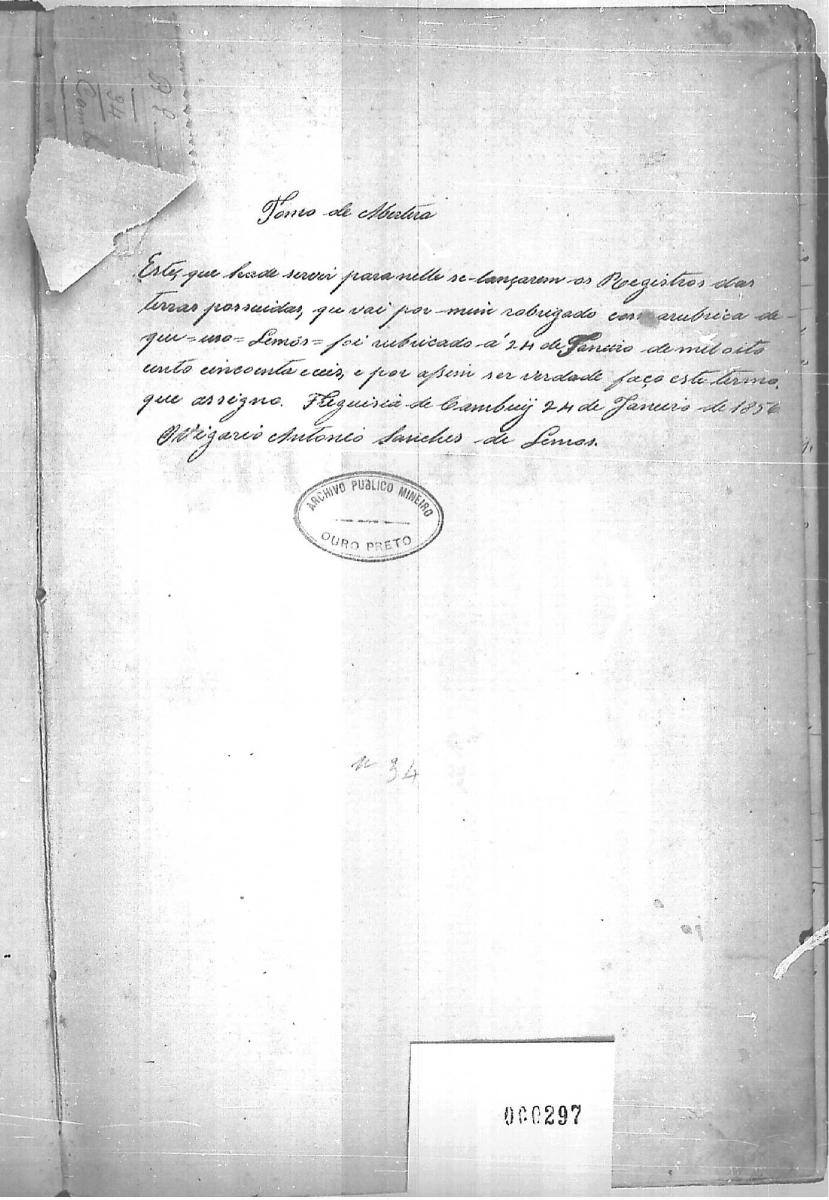 R P
34
Camb
Tomo de Abertura
Este, que hade servir para nelle se-lançarem os Registros das
terras possuidas, que vai por mim robrigado com arubrica de-
que=uso=Lemos=foi rubricado á 24 de Janeiro de mil oito
cento cincoenta eceis, e por assim ser verdade faço este termo,
que assigno. Freguisia de Cambuÿ 24 de Janeiro de 1856
O Vigario Antonio Sanches de Lemos.
ARCHIVO PUBLICO MINEIRO
OURO PRETO
n 34
000297